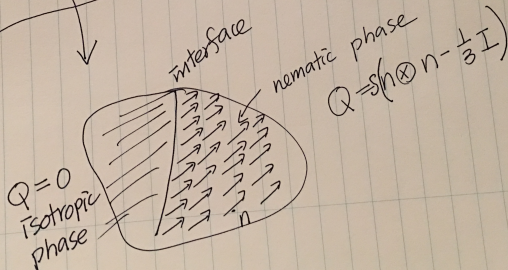 interface
nematic phase
Q = s(n ⊗ n - 1/3 I)
Q = 0
isotropic
phase
n